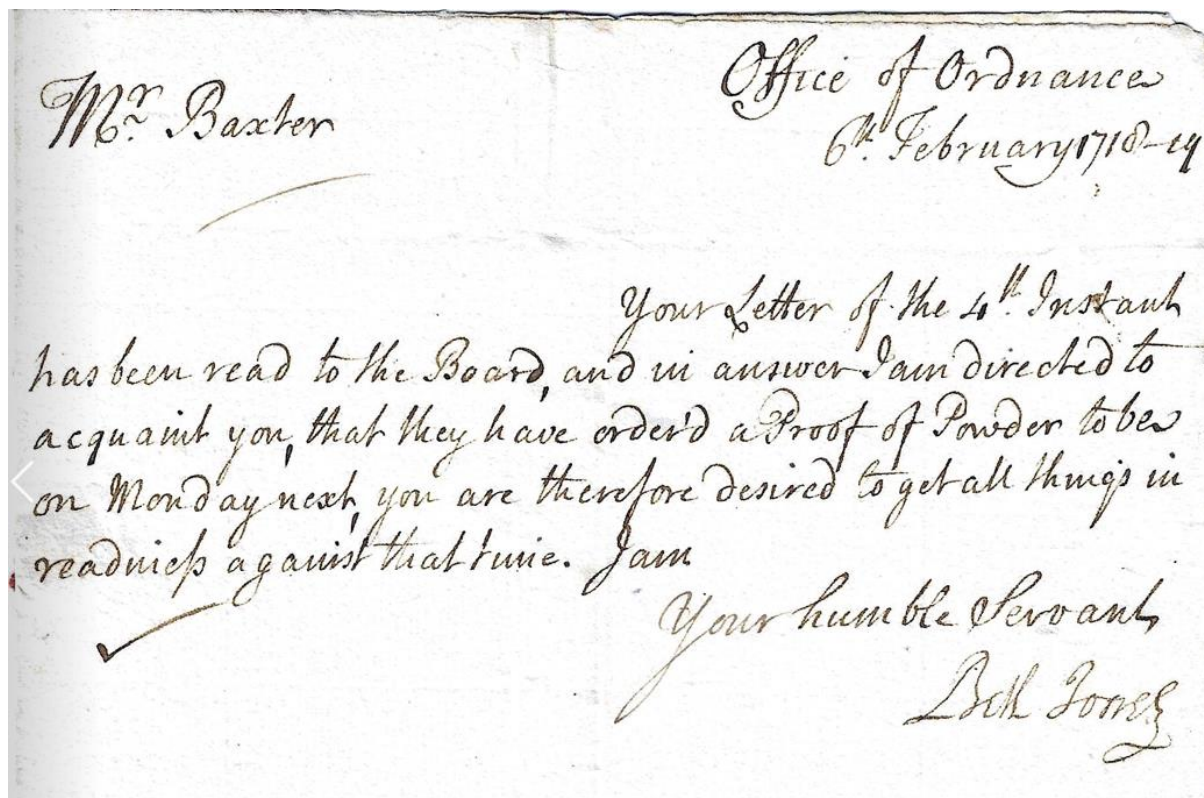 Office of Ordnance
Mr. Baxter
6th. February 1718-19
Your Letter of the 4th. Instant
has been read to the Board, and in answer I am directed to
acquaint you, that they have order'd a Proof of Powder to be
on Monday next, you are therefore desired to get all things in
readiness against that time. I am
Your humble Servant,
Jones